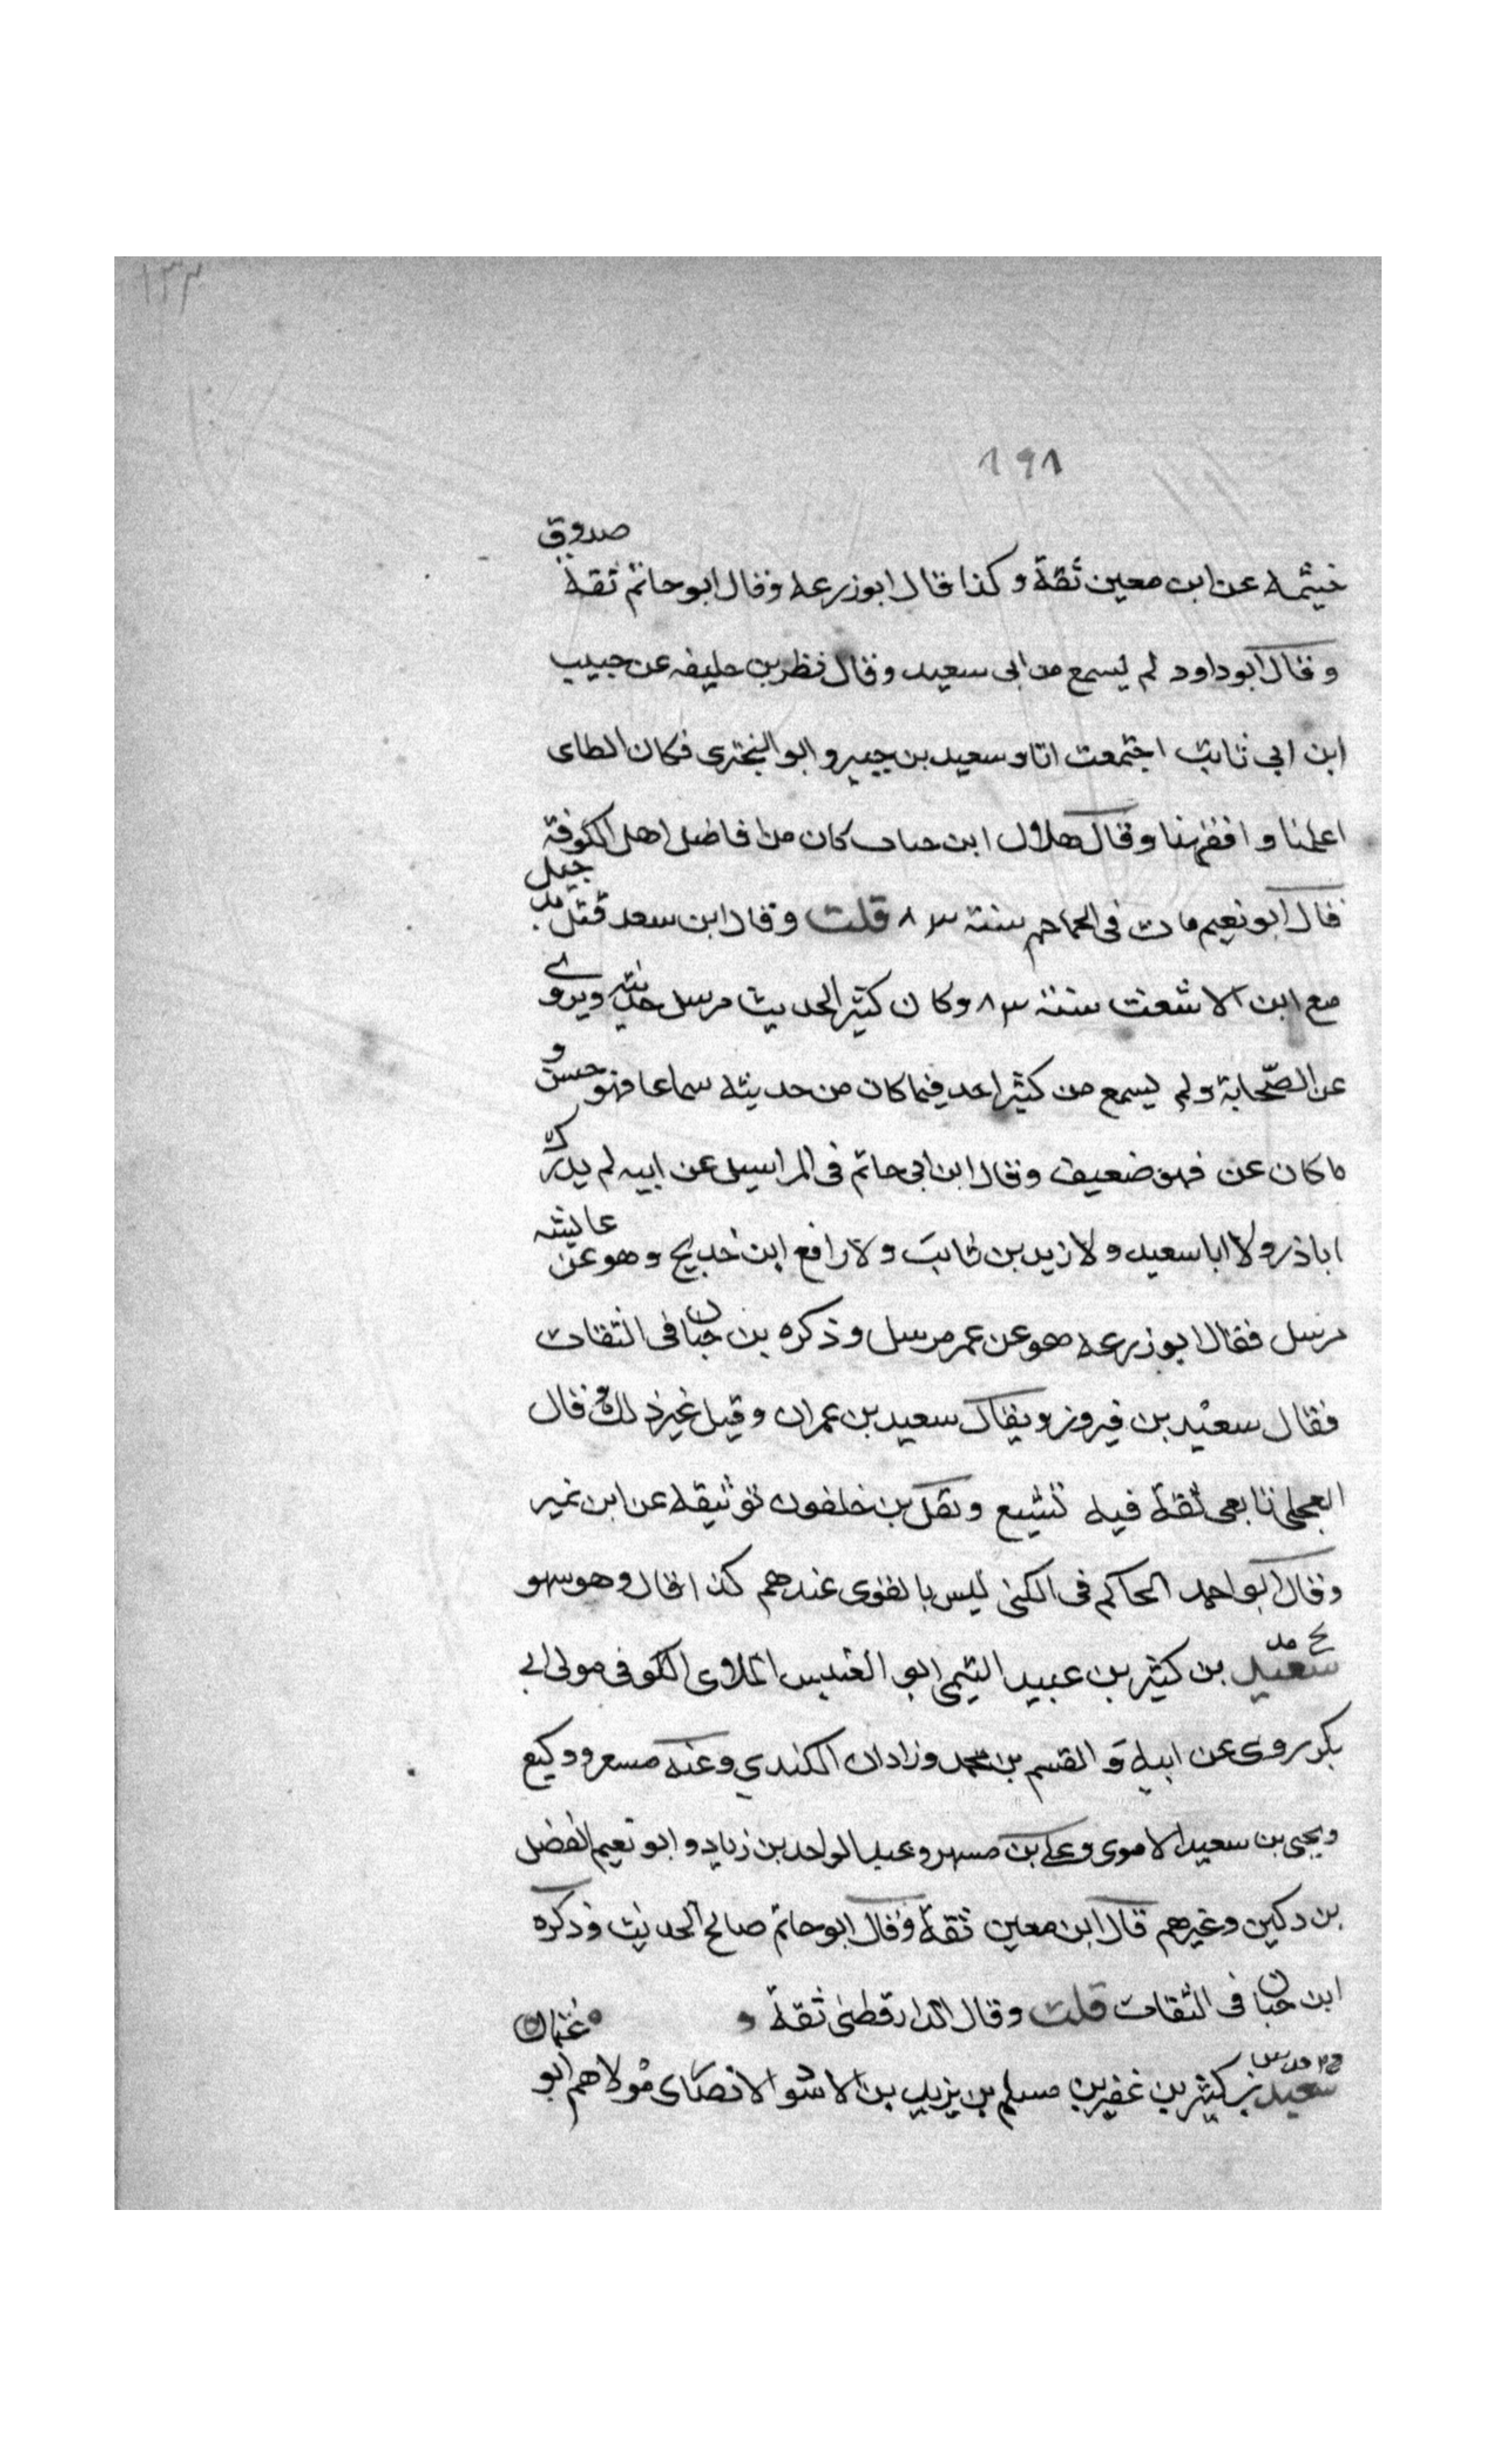 ١٣٣
١٩١
خيثمه عن ابن معين ثقة وكذا قال ابو زرعه وقال ابو حاتم ثقة صدوق
وقال ابو داود لم يسمع من ابى سعيد وقال فطر بن خليفه عن حبيب
ابن ابي ثابت اجتمعت انا وسعيد بن جبير و ابو البخترى فكان الطاى
اعلمنا و افقهنا وقال هلال ابن حباب كان من افاضل اهل الكوفة
قال ابو نعيم مات فى الجماجم سنة ٨٣ قلت وقال ابن سعد قتل بدجيل
مع ابن الاشعث سنة ٨٣ وكان كثير الحديث مرسل حديثه ويروي
عن الصّحابة ولم يسمع من كثير احد فيما كان من حديثه سماعا فهو حسن و
ما كان عن فهو ضعيف وقال ابن ابى حاتم فى المراسيل عن ابيه لم يدرك
اباذر ولا ابا سعيد ولا زيد بن ثابت ولا رافع ابن خديج وهو عن عايشه
مرسل فقال ابو زرعه هو عن عمر مرسل وذكره بن حبان فى الثقات
فقال سعيد بن فيروز ويقال سعيد بن عمران وقيل غير ذلك و قال
العجلى تابعى ثقة فيه تشيع ونقل بن خلفون توثيقه عن ابن نمير
وقال ابو احمد الحاكم فى الكنى ليس بالقوى عندهم كذا قال وهو سهو
سعيد بن كثير بن عبيد التيمى ابو العنبس الملاى الكوفى مولى ابي
بكر روى عن ابيه و القسم بن محمد وزادان الكندي وعنه مسعر ووكيع
ويحيى بن سعيد الاموى وعلي بن مسهر وعبد الواحد بن زياد و ابو نعيم الفضل
بن دكين وغيرهم قال ابن معين ثقة وقال ابو حاتم صالح الحديث وذكره
ابن حبان فى الثقات قلت وقال الدارقطنى ثقة
سعيد بن كثير بن عفير بن مسلم بن يزيد بن الاسود الانصارى مولاهم ابو عثمان